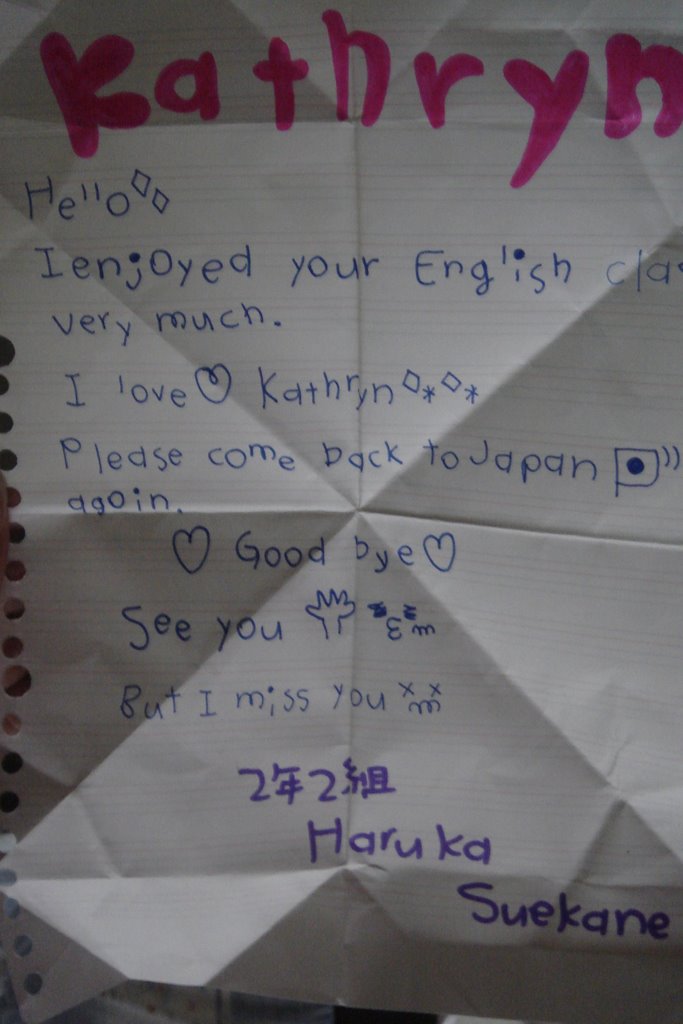 Kathryn
Hello
I enjoyed your English cla
very much.
I love♡ Kathryn
Please come back to Japan
again.
♡ Good bye♡
See you
But I miss you
2年2組
Haruka
Suekane